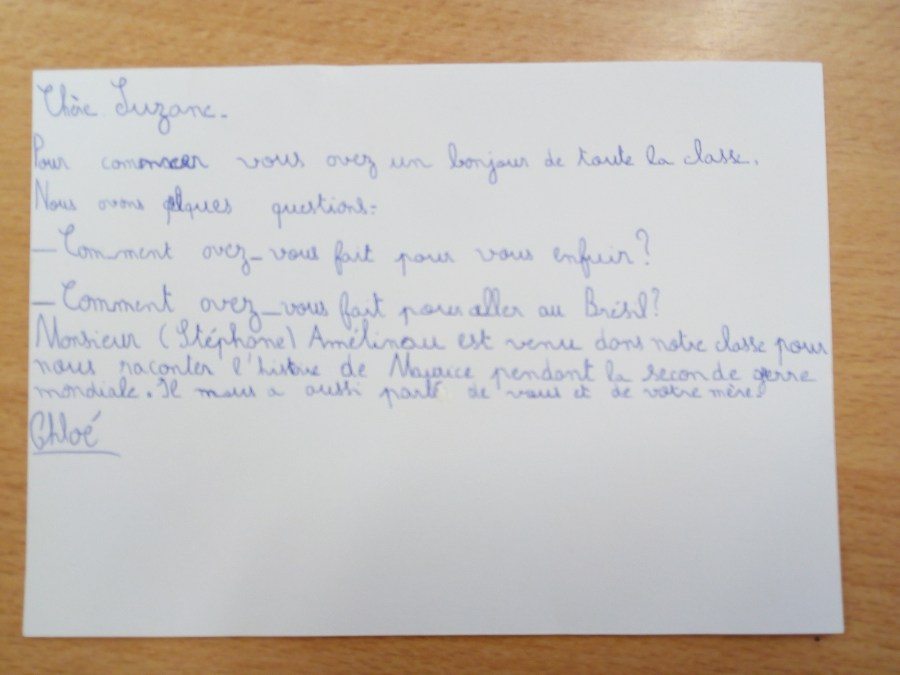 Chère Suzane.
Pour commencer vous avez un bonjour de toute la classe.
Nous avons qelques questions:
- Comment avez-vous fait pour vous enfuir?
- Comment avez-vous fait pour aller au Brésil?
Monsieur (Stéphane) Amélineau est venu dans notre classe pour
nous raconter l'histoire de pendant la seconde gerre
mondiale. Il nous a aussi parlé de vous et de votre mère!
Chloé